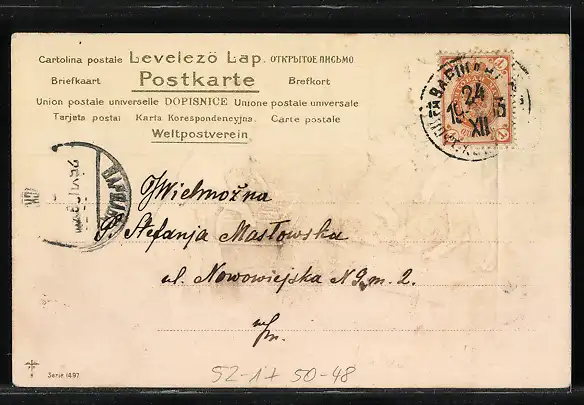 Cartolina postale Levelezö Lap. ОТКРЫТОЕ ПИСЬМО
Briefkaart Postkarte Brefkort
Union postale universelle DOPISNICE Unione postale universale
Tarjeta postal Karta Korespondencyjna. Carte postale
Weltpostverein
24
XII
JWielmożna
P. Stefanja Masłowska
ul. Nowowiejska N 9 m. 2.
Serie 1497
52-17 50-48